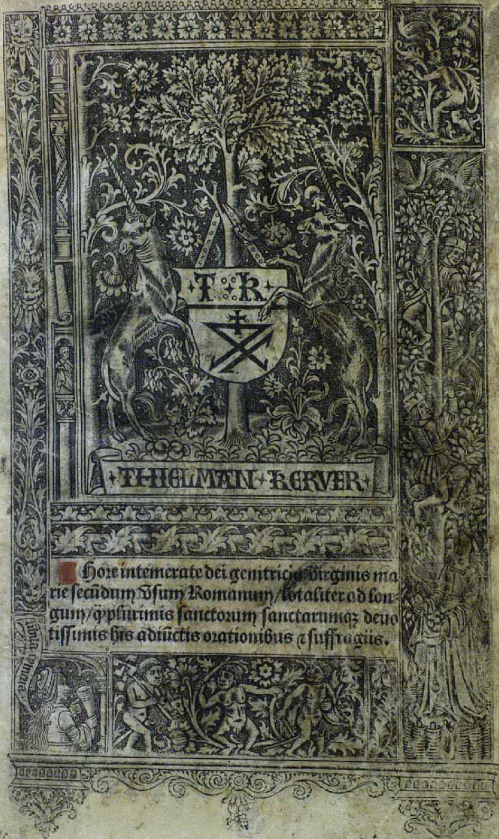 T K
THIELMAN KERVER
Hore intemerate dei genitricis virginis ma
rie secūdum Vsum Romanum / totaliter ad lon
gum / q̄ plurimis sanctorum sanctarumqꝫ deuo
tissimis his adiūctis orationibus ⁊ suffragiis.